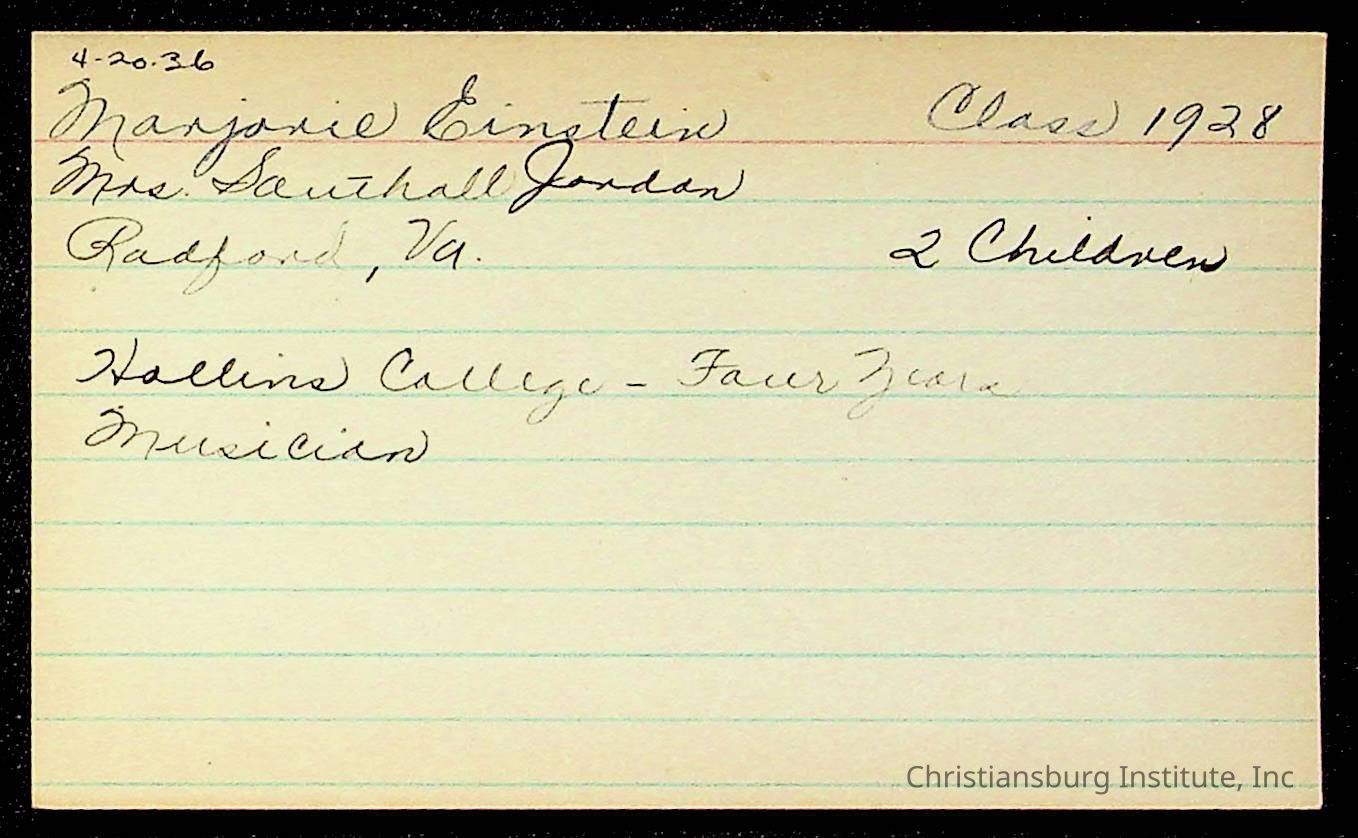 4-20-36
Marjorie Einstein Class 1928
Mrs. Southall Jordan
Radford, Va. 2 Children
Hollins College - Four Years
Musician
Christiansburg Institute, Inc